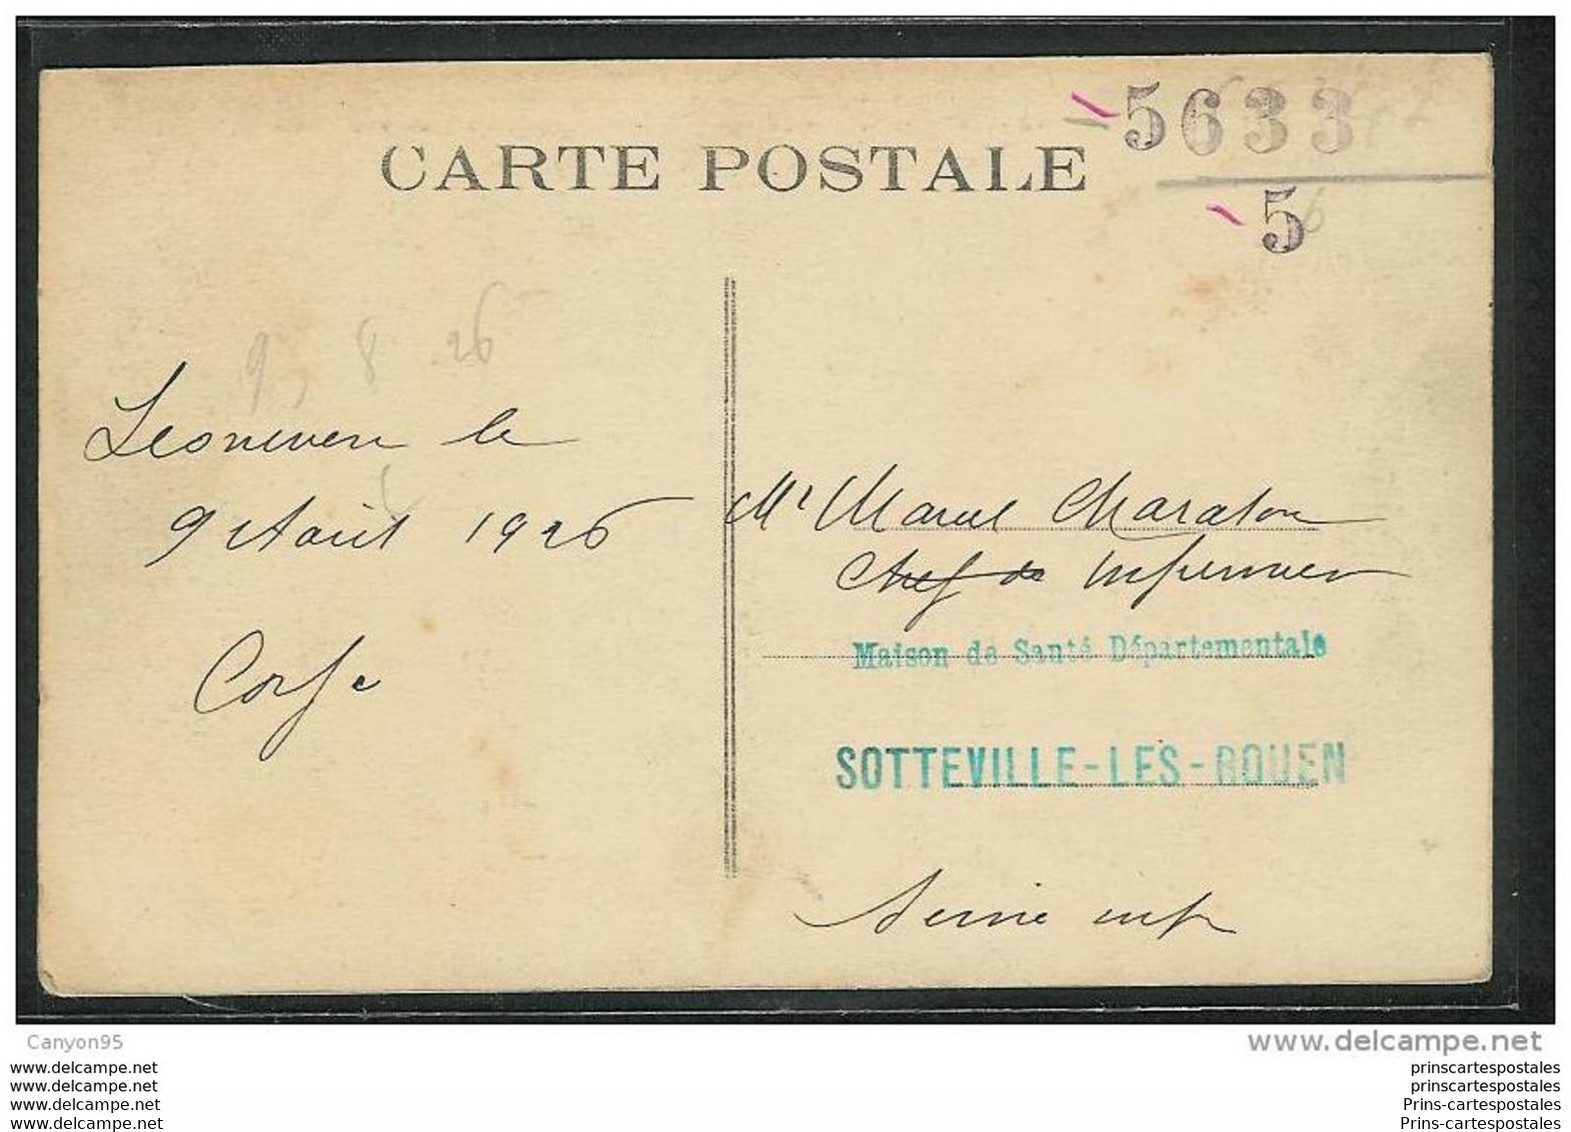 5633
5
CARTE POSTALE
9, 8 26
Lesneven le
9 Août 1926
Mr Marcel
Chef de infirmier
Maison de Santé Départementale
SOTTEVILLE-LES-ROUEN
Seine inf
Canyon95
www.delcampe.net
www.delcampe.net
www.delcampe.net
www.delcampe.net
www.delcampe.net
prinscartespostales
prinscartespostales
Prins-cartespostales
Prins-cartespostales